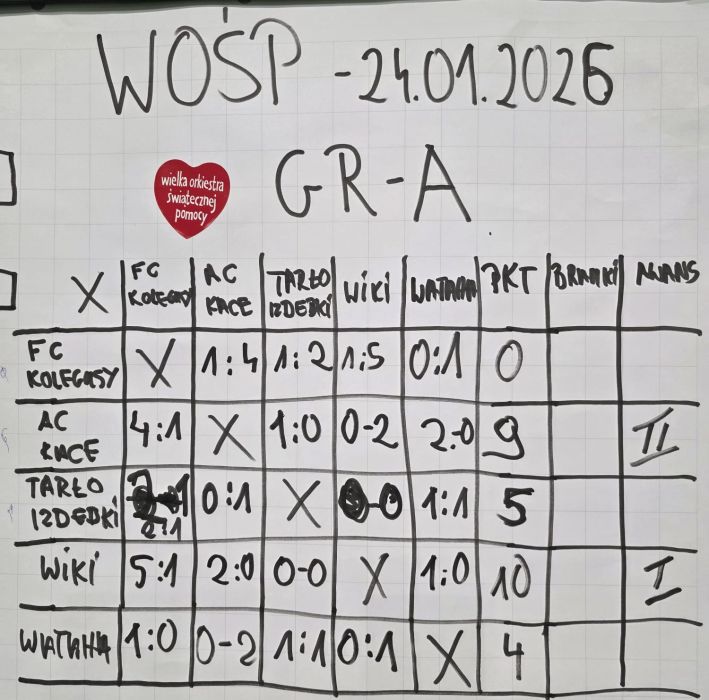 WOŚP - 24.01.2026
wielka orkiestra
świątecznej
pomocy
GR-A
X FC KOLEGASY AC KACE TARŁO IZDEDKI WIKI WATAHA PKT BRAMKI AWANS
FC KOLEGASY X 1:4 1:2 1:5 0:1 0
AC KACE 4:1 X 1:0 0-2 2:0 9 II
TARŁO IZDEDKI 2:1 0:1 X 0-0 1:1 5
WIKI 5:1 2:0 0-0 X 1:0 10 I
WATAHA 1:0 0-2 1:1 0:1 X 4